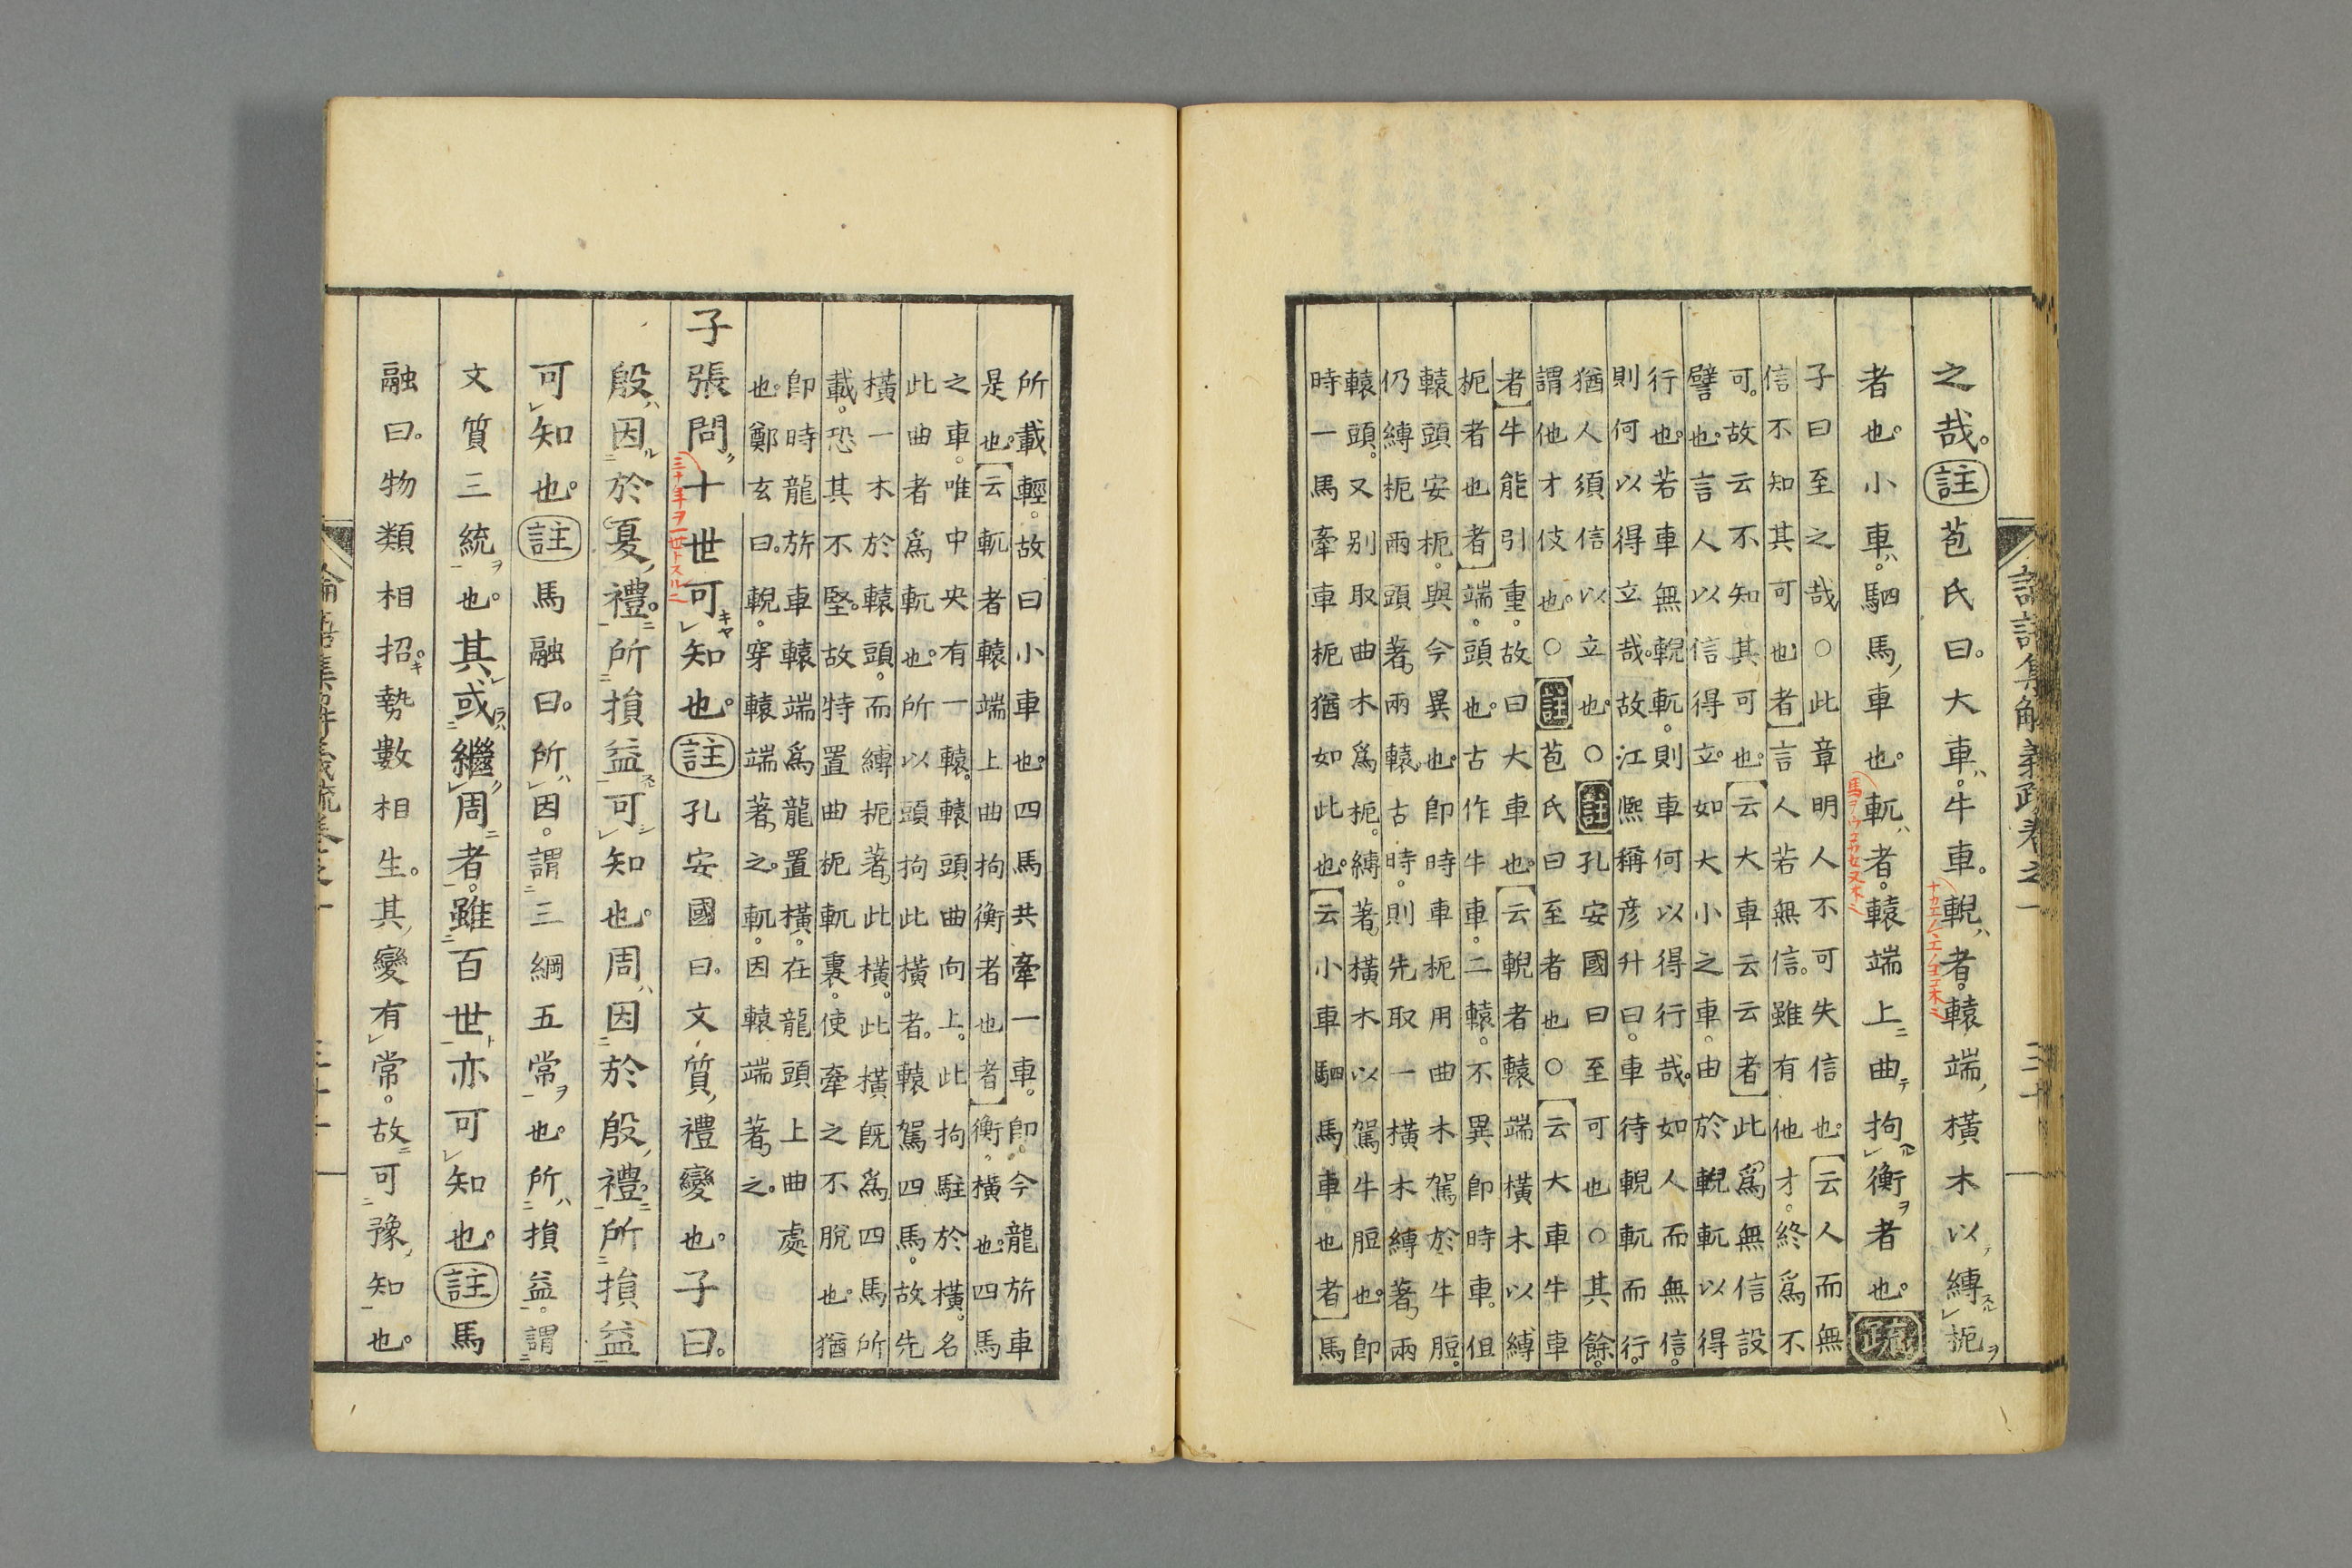 之哉。註苞氏曰。大車。牛車。輗者。轅端橫木以縛枙
者也。小車。駟馬車也。軏者。轅端上曲拘衡者也。疏
子曰至之哉○此章明人不可失信也。云人而無
信不知其可也者言人若無信。雖有他才。終爲不
可。故云不知其可也。云大車云云者此爲無信設
譬也。言人以信得立。如大小之車。由於輗軏以得
行也。若車無輗軏。則車何以得行哉。如人而無信。
則何以得立哉。故江熈稱彦升曰。車待輗軏而行。
猶人須信以立也。○註孔安國曰至可也○其餘。
謂他才伎也。○註苞氏曰至者也○云大車牛車
者牛能引重。故曰大車也。云輗者轅端橫木以縛
枙者也者端。頭也。古作牛車。二轅。不異即時車。但
轅頭安枙。與今異也。即時車枙用曲木駕於牛脰。
仍縛枙兩頭著兩轅。古時。則先取一橫木縛著兩
轅頭。又别取曲木爲枙。縛著橫木以駕牛脰也。即
時一馬牽車枙猶如此也。云小車駟馬車也者馬
所載輕。故曰小車也。四馬共牽一車。即今龍旂車
是也。云軏者轅端上曲拘衡者也者衡。橫也。四馬
之車。唯中央有一轅。轅頭曲向上。此拘駐於橫。名
此曲者爲軏也。所以頭拘此橫者。轅駕四馬。故先
橫一木於轅頭。而縛枙著此橫。此橫旣爲四馬所
載。恐其不堅。故特置曲枙軏裏。使牽之不脫也。猶
即時龍旂車轅端爲龍置橫。在龍頭上曲處
也。鄭玄曰。輗。穿轅端著之。軏。因轅端著之。
子張問十世可知也。註孔安國曰。文質禮變也。子曰。
殷因於夏禮。所損益可知也。周因於殷禮。所損益
可知也。註馬融曰。所因。謂三綱五常也。所損益。謂
文質三統也。其或繼周者。雖百世亦可知也。註馬
融曰。物類相招。勢數相生。其變有常。故可豫知也。